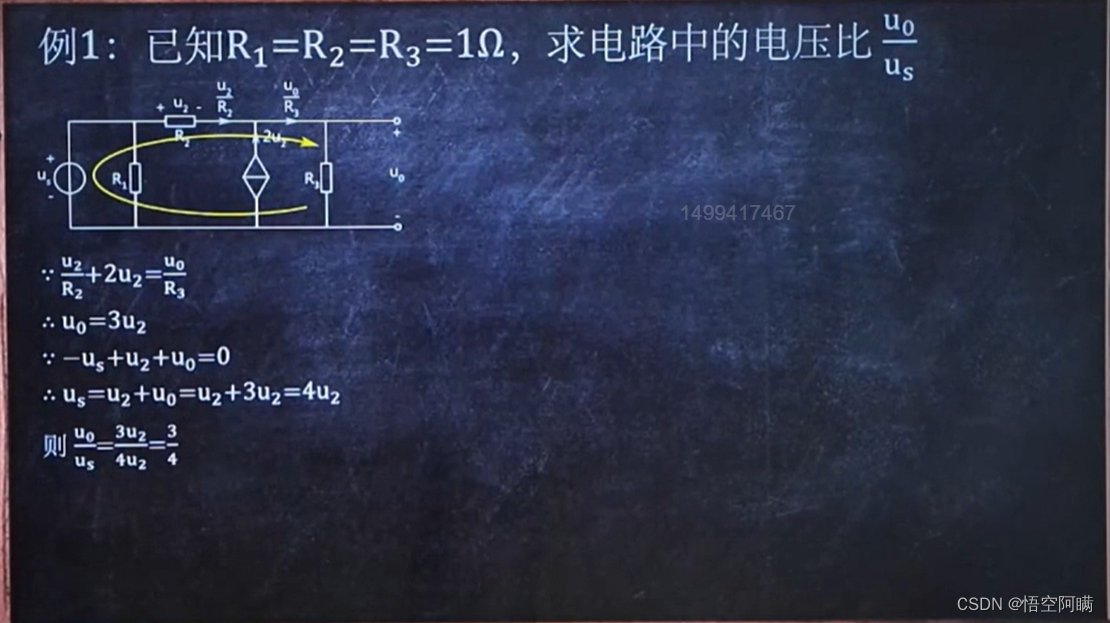 例1：已知R₁=R₂=R₃=1Ω，求电路中的电压比 u₀/uₛ
+ u₂ - u₂/R₂ u₀/R₃
R₂ 2u₂ +
+
uₛ R₁ R₃ u₀
-
-
1499417467
∵ u₂/R₂+2u₂=u₀/R₃
∴ u₀=3u₂
∵ −uₛ+u₂+u₀=0
∴ uₛ=u₂+u₀=u₂+3u₂=4u₂
则 u₀/uₛ=3u₂/4u₂=3/4
CSDN @悟空阿瞒